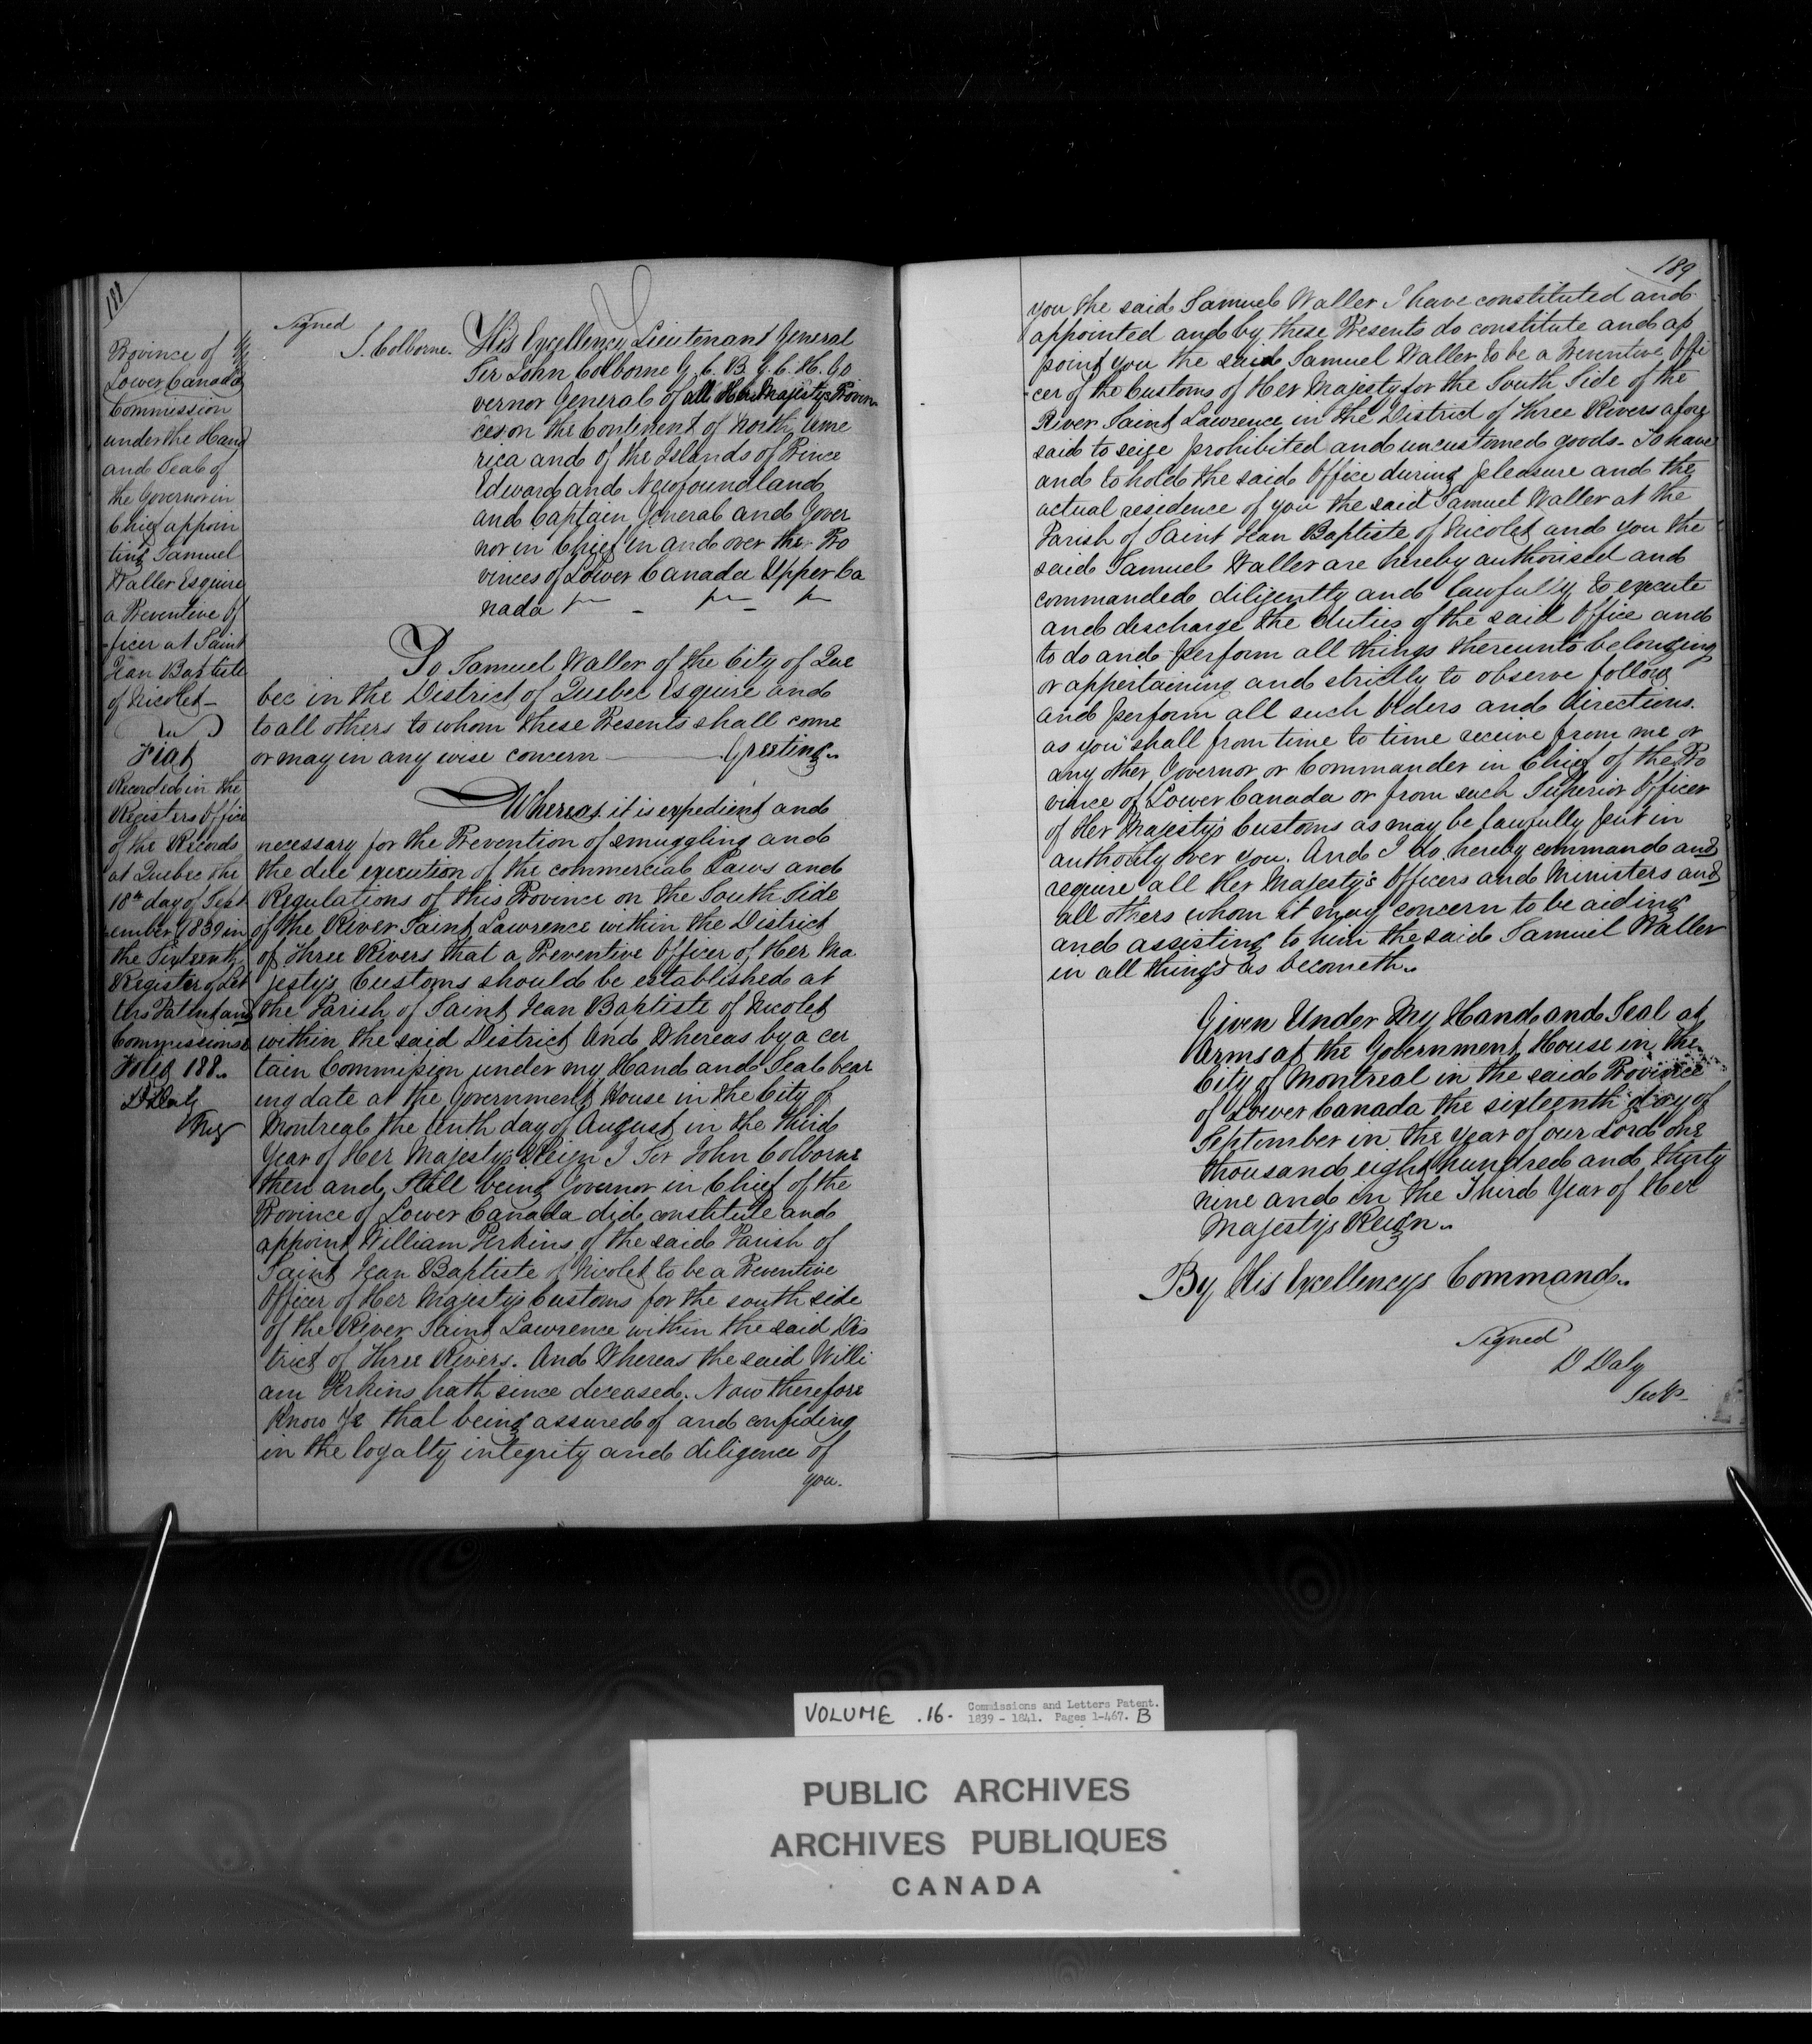 188
Province of
Lower Canada
Commission
under the Hand
and Seal of
the Governor in
Chief appoin
ting Samuel
Waller Esquire
a Preventive Of
-ficer at Saint
Jean Baptiste
of Nicolet-
Fiat
Recorded in the
Registers Office
of the Records
at Quebec the
18th day of Sept
ember 1839 in
the Sixteenth
Register of Let
ters Patent and
Commissions
Folio 188.
D Daly
Signed
J. Colborne.
His Excellency Lieutenant General
Sir John Colborne G. C. B. G. C. H. Go
vernor General of all Her Majesty's Provin
ces on the Continent of North Ame
rica and of the Islands of Prince
Edward and Newfoundland
and Captain General and Gover
nor in Chief in and over the Pro
vinces of Lower Canada Upper Ca
nada
To Samuel Waller of the City of Que
bec in the District of Quebec Esquire and
to all others to whom these Presents shall come
or may in any wise concern Greeting.
Whereas it is expedient and
necessary for the Prevention of smuggling and
the due execution of the commercial Laws and
Regulations of this Province on the South Side
of the River Saint Lawrence within the District
of Three Rivers that a Preventive Officer of Her Ma
jesty's Customs should be established at
the Parish of Saint Jean Baptiste of Nicolet
within the said District And Whereas by a cer
tain Commission under my Hand and Seal bear
ing date at the Government House in the City of
Montreal the tenth day of August in the third
Year of Her Majesty's Reign I Sir John Colborne
then and Still being Governor in Chief of the
Province of Lower Canada did constitute and
appoint William Perkins of the said Parish of
Saint Jean Baptiste of Nicolet to be a Preventive
Officer of Her Majesty's Customs for the south side
of the River Saint Lawrence within the said Dis
trict of Three Rivers. And Whereas the said Willi
am Perkins hath since deceased. Now therefore
Know Ye that being assured of and confiding
in the loyalty integrity and diligence of
you.
189
you the said Samuel Waller I have constituted and
appointed and by these Presents do constitute and ap
point you the said Samuel Waller to be a Preventive Offi
-cer of the Customs of Her Majesty for the South Side of the
River Saint Lawrence in the District of Three Rivers afore
said to seize prohibited and uncustomed goods- To have
and to hold the said Office during pleasure and the
actual residence of you the said Samuel Waller at the
Parish of Saint Jean Baptiste of Nicolet and you the
said Samuel Waller are hereby authorised and
commanded diligently and lawfully to execute
and discharge the duties of the said Office and
to do and perform all things thereunto belonging
or appertaining and strictly to observe follow
and perform all such Olders and directions.
as you shall from time to time receive from me or
any other Governor or Commander in Chief of the Pro
vince of Lower Canada or from such Superior Officer
of Her Majesty's Customs as may be lawfully put in
authority over you. And I do hereby command and
require all Her Majesty's Officers and Ministers and
all others whom it may concern to be aiding
and assisting to him the said Samuel Waller
in all things as becometh.
Given Under My Hand and Seal at
Arms at the Government House in the
City of Montreal in the said Province
of Lower Canada the sixteenth day of
September in the year of our Lord one
thousand eight hundred and thirty
nine and in the Third Year of Her
Majesty's Reign.
By His Excellencys Command.
Signed
D Daly
Secy-
VOLUME .16. Commissions and Letters Patent.
1839 - 1841. Pages 1-467. B
PUBLIC ARCHIVES
ARCHIVES PUBLIQUES
CANADA